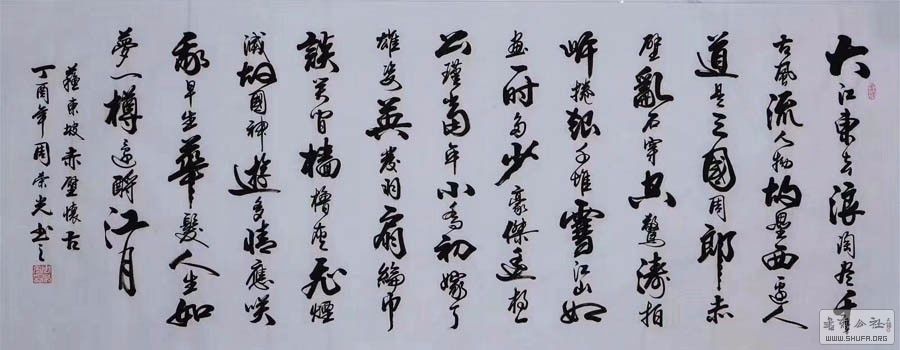 大江东去浪淘尽千
古风流人物故垒西边人
道是三國周郎赤
壁亂石穿空驚涛拍
岍捲起千堆雪江山如
画一时多少豪傑遥想
公瑾當年小乔初嫁了
雄姿英发羽扇綸巾
談笑间樯櫓灰飛煙
滅故國神遊多情應笑
我早生華髮人生如
夢一樽还酹江月
蘇東坡赤壁懷古
丁酉年周荣光书
书法公社
WWW.SHUFA.ORG